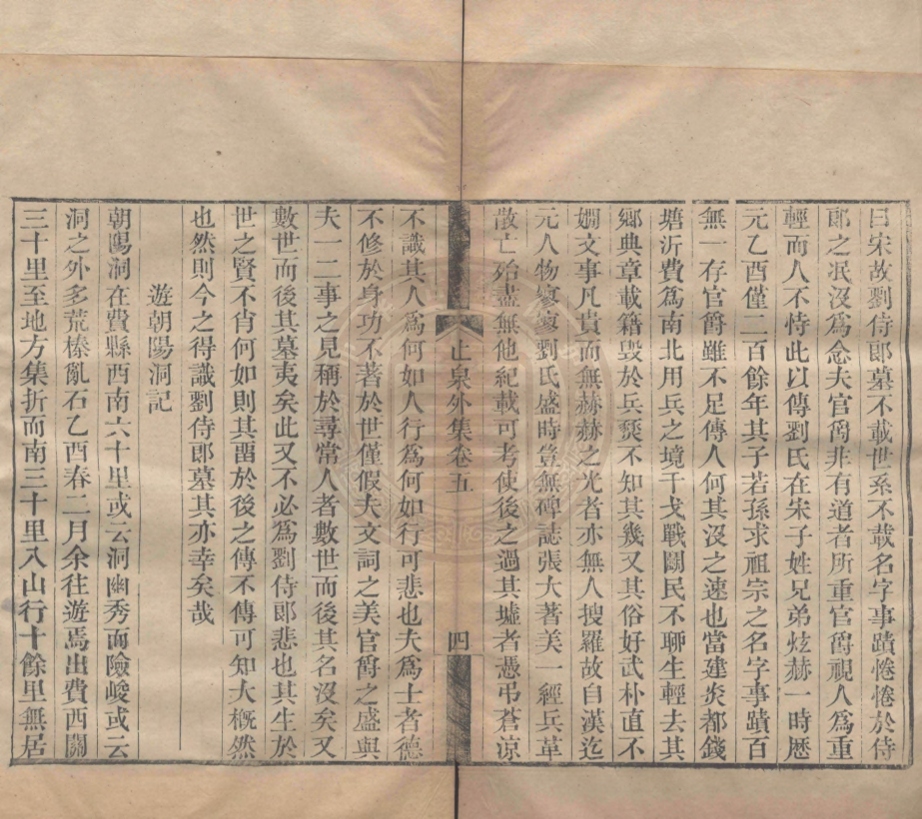 曰宋故劉侍郎墓不載世系不載名字事蹟惓惓於侍
郎之泯沒爲念夫官爵非有道者所重官爵視人爲重
輕而人不恃此以傳劉氏在宋子姓兄弟炫赫一時歷
元乙酉僅二百餘年其子若孫求祖宗之名字事蹟百
無一存官爵雖不足傳人何其沒之速也當建炎都錢
塘沂費爲南北用兵之境干戈戰鬭民不聊生輕去其
鄉典章載籍毀於兵燹不知其幾又其俗好武朴直不
嫺文事凡貴而無赫赫之光者亦無人搜羅故自漢迄
元人物寥寥劉氏盛時豈無碑誌張大著美一經兵革
散亡殆盡無他紀載可考使後之過其墟者憑弔蒼涼
止泉外集卷五
四
不識其人爲何如人行爲何如行可悲也夫爲士者德
不修於身功不著於世僅假夫文詞之美官爵之盛與
夫一二事之見稱於尋常人者數世而後其名沒矣又
數世而後其墓夷矣此又不必爲劉侍郎悲也其生於
世之賢不肖何如則其畱於後之傳不傳可知大槪然
也然則今之得識劉侍郎墓其亦幸矣哉
遊朝陽洞記
朝陽洞在費縣西南六十里或云洞幽秀而險峻或云
洞之外多荒榛亂石乙酉春二月余往遊焉出費西關
三十里至地方集折而南三十里入山行十餘里無居